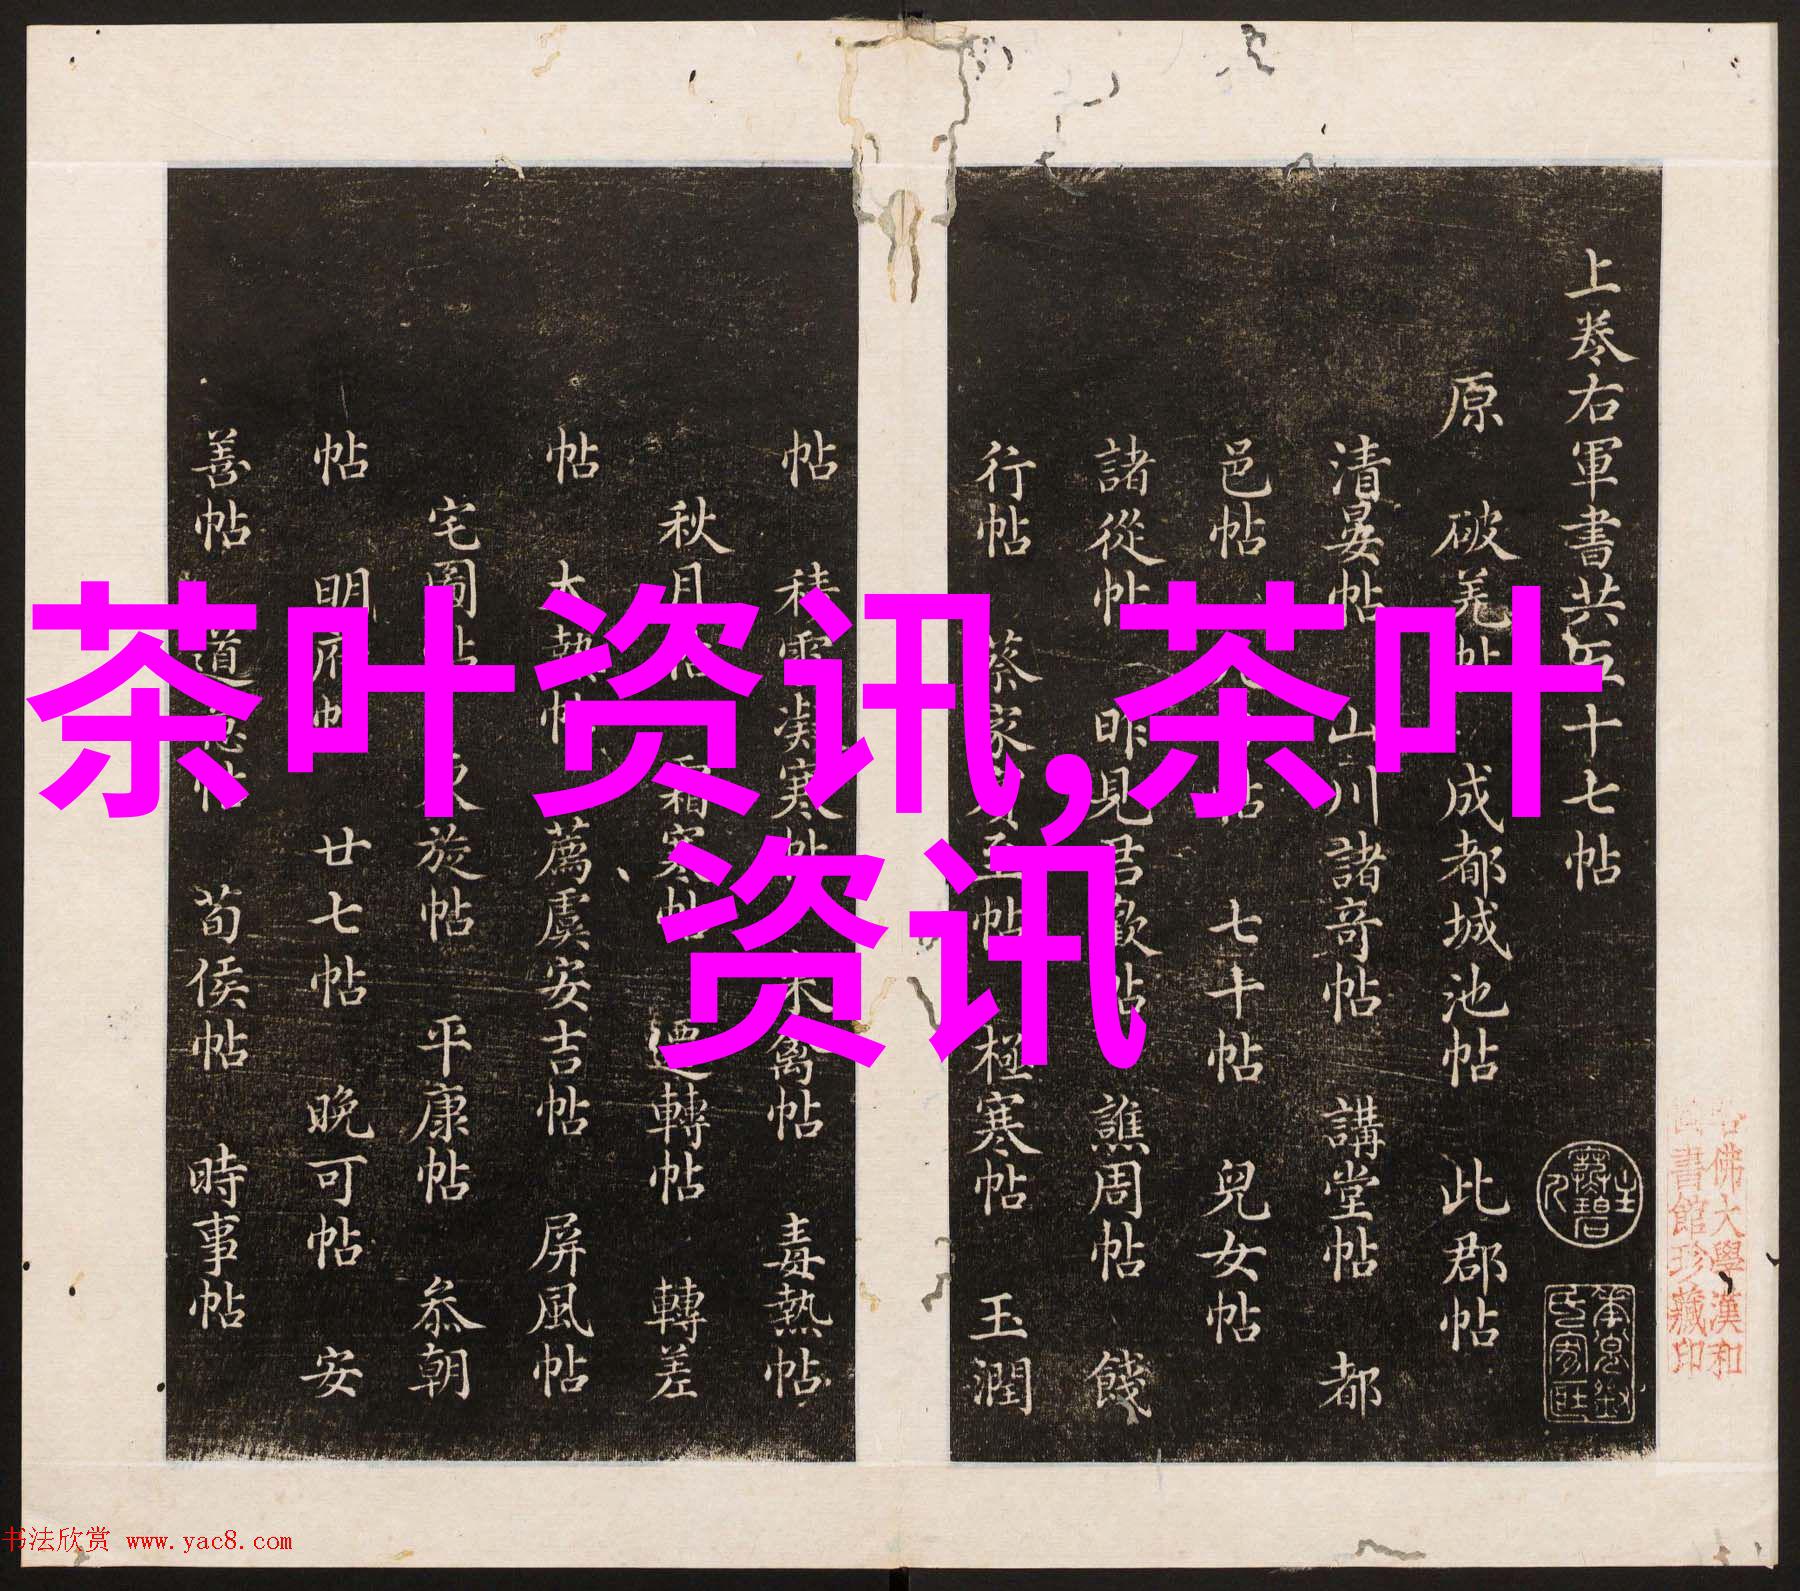 上卷右軍書共五十七帖
原 破羌帖 成都城池帖 此郡帖
清晏帖 山川諸奇帖 講堂帖 都
邑帖 帖 七十帖 兒女帖
諸從帖 昨見君歡帖 譙周帖 餞
行帖 蔡家賓至帖 極寒帖 玉潤
帖 積雪凝寒帖 來禽帖 毒熱帖
秋月帖 霜寒帖 遷轉帖 轉差
帖 大熱帖 薦虞安吉帖 屏風帖
宅圖帖 東旋帖 平康帖 叅朝
帖 明府帖 廿七帖 晚可帖 安
善帖 道意帖 荀侯帖 時事帖
茶叶资讯,茶叶
资讯
佛大學漢和
書館珍藏印
书法欣赏 www.yac8.com